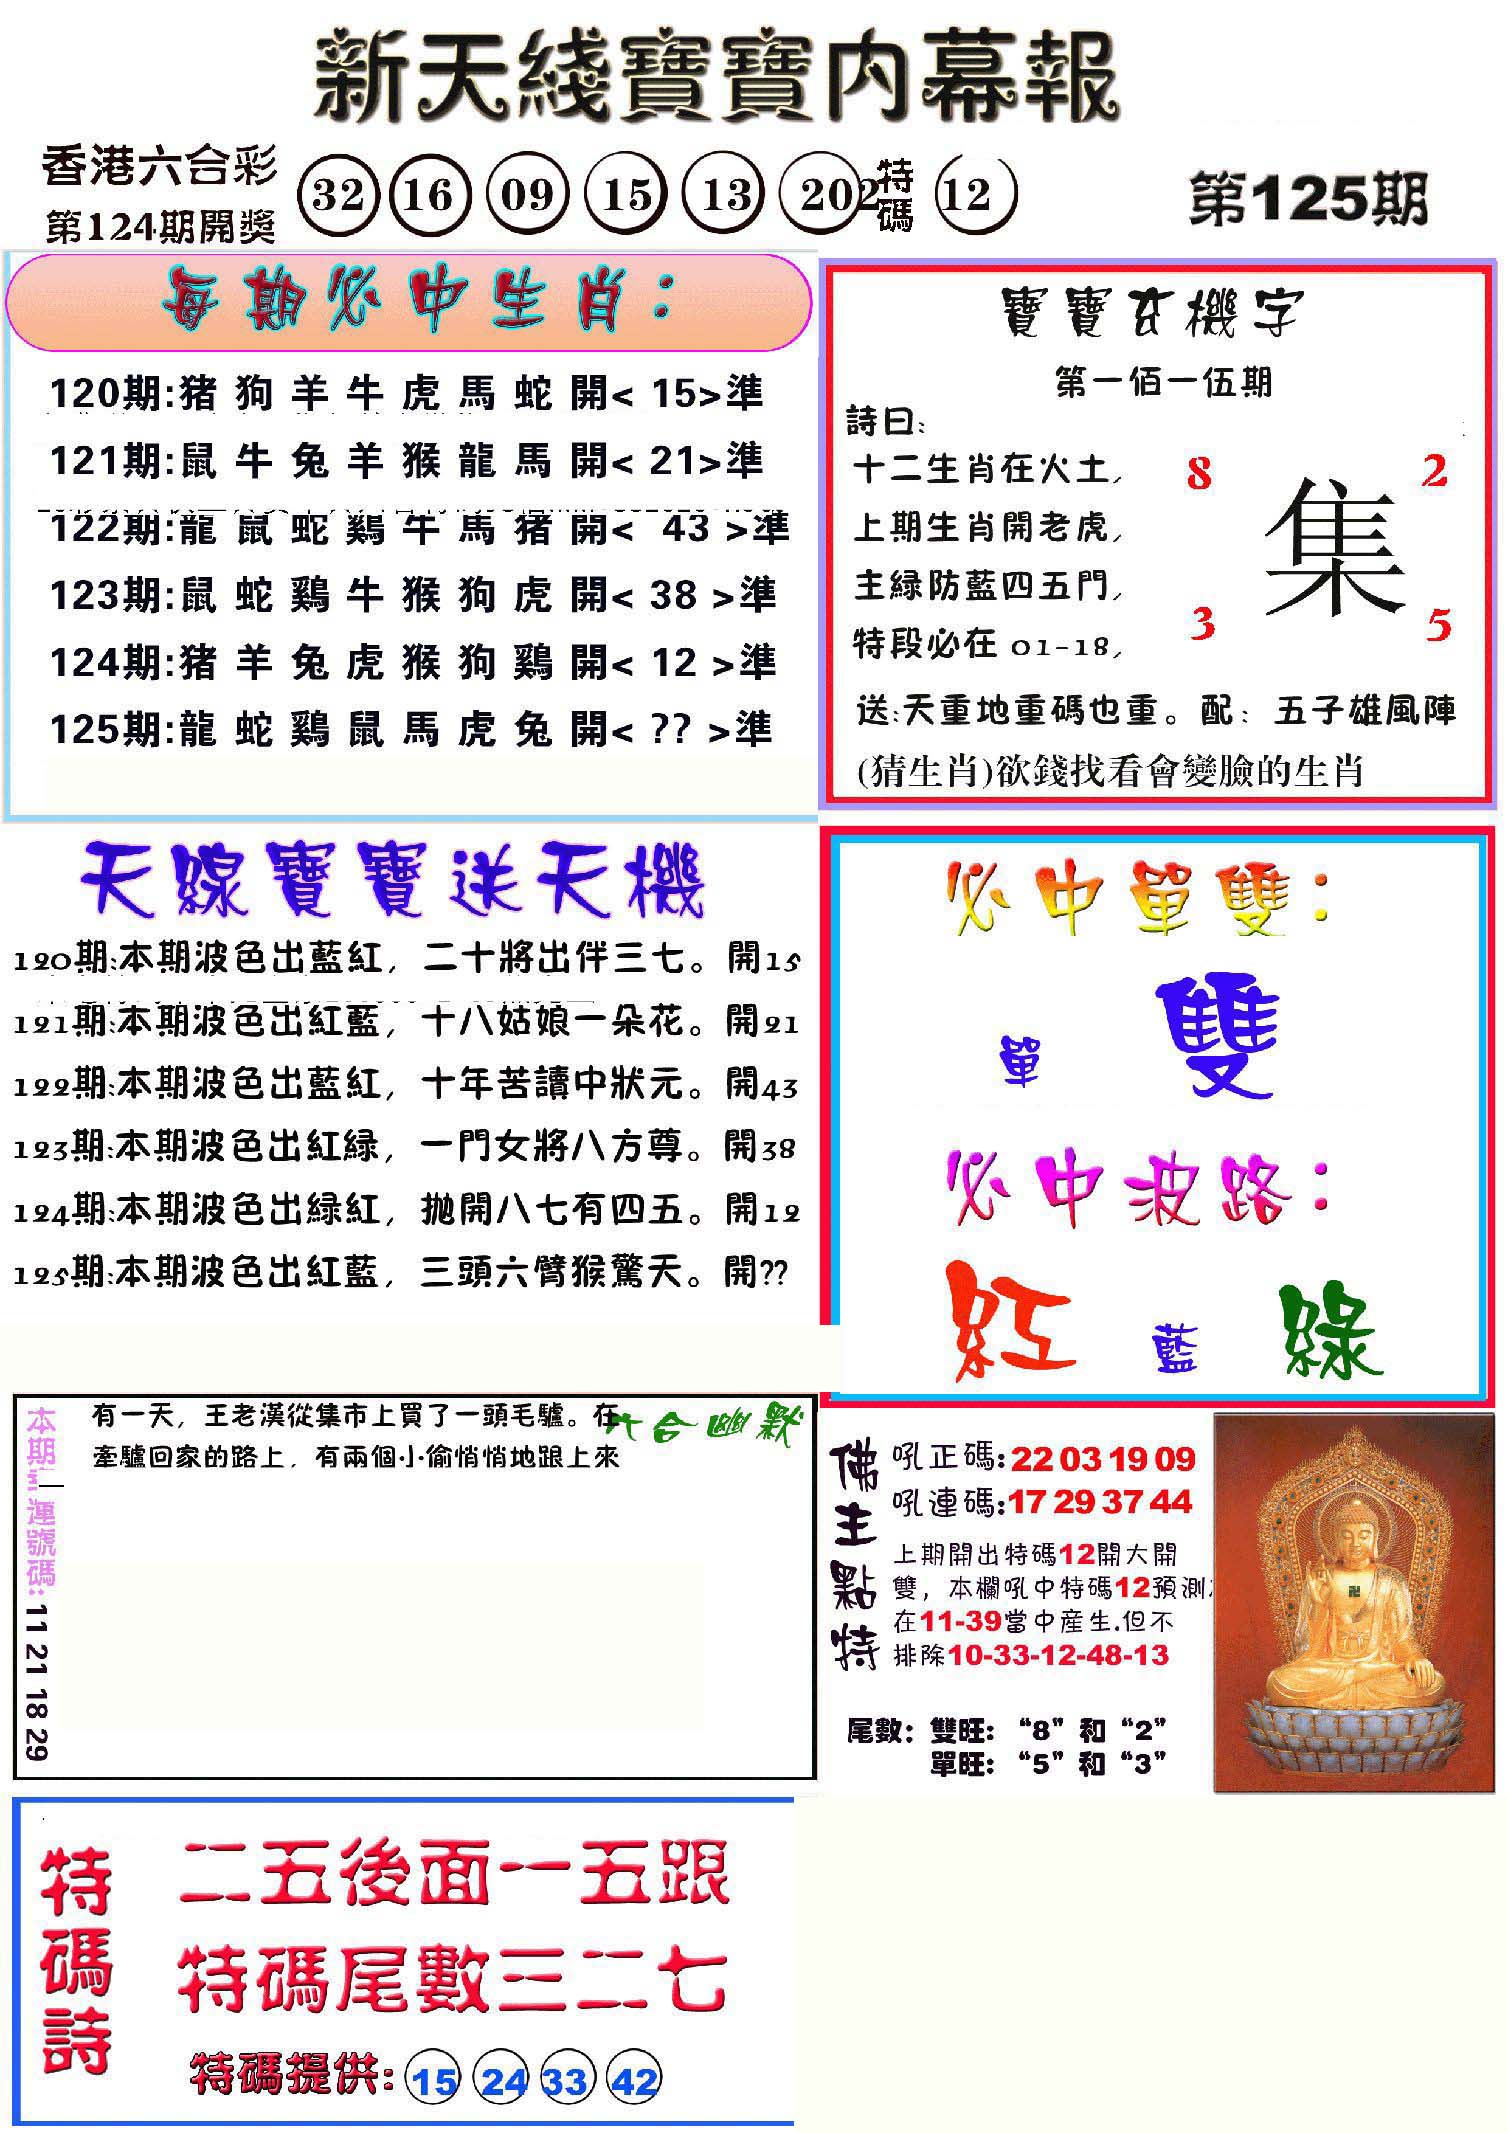 新天綫寶寶内幕報
香港六合彩
第124期開獎
32 16 09 15 13 202 特碼 12
第125期
每期必中生肖：
120期:猪 狗 羊 牛 虎 馬 蛇 開< 15>準
121期:鼠 牛 兔 羊 猴 龍 馬 開< 21>準
122期:龍 鼠 蛇 鷄 牛 馬 猪 開< 43 >準
123期:鼠 蛇 鷄 牛 猴 狗 虎 開< 38 >準
124期:猪 羊 兔 虎 猴 狗 鷄 開< 12 >準
125期:龍 蛇 鷄 鼠 馬 虎 兔 開< ?? >準
寶寶玄機字
第一佰一伍期
詩曰:
十二生肖在火土,
上期生肖開老虎,
主緑防藍四五門,
特段必在 01-18,
8 2
集
3 5
送:天重地重碼也重。配：五子雄風陣
(猜生肖)欲錢找看會變臉的生肖
天線寶寶送天機
120期:本期波色出藍紅, 二十將出伴三七。開15
121期:本期波色出紅藍, 十八姑娘一朵花。開21
122期:本期波色出藍紅, 十年苦讀中狀元。開43
123期:本期波色出紅緑, 一門女將八方尊。開38
124期:本期波色出緑紅, 抛開八七有四五。開12
125期:本期波色出紅藍, 三頭六臂猴驚天。開??
必中單雙：
單 雙
必中波路：
紅 藍 綠
六合幽默
有一天, 王老漢從集市上買了一頭毛驢。在
牽驢回家的路上, 有兩個小偷悄悄地跟上來
本期 運號碼: 11 21 18 29
佛主點特
吼正碼:22 03 19 09
吼連碼:17 29 37 44
上期開出特碼12開大開
雙, 本欄吼中特碼12預測
在11-39當中産生.但不
排除10-33-12-48-13
尾數: 雙旺: “8”和“2”
單旺: “5”和“3”
特碼詩
二五後面一五跟
特碼尾數三二七
特碼提供: 15 24 33 42